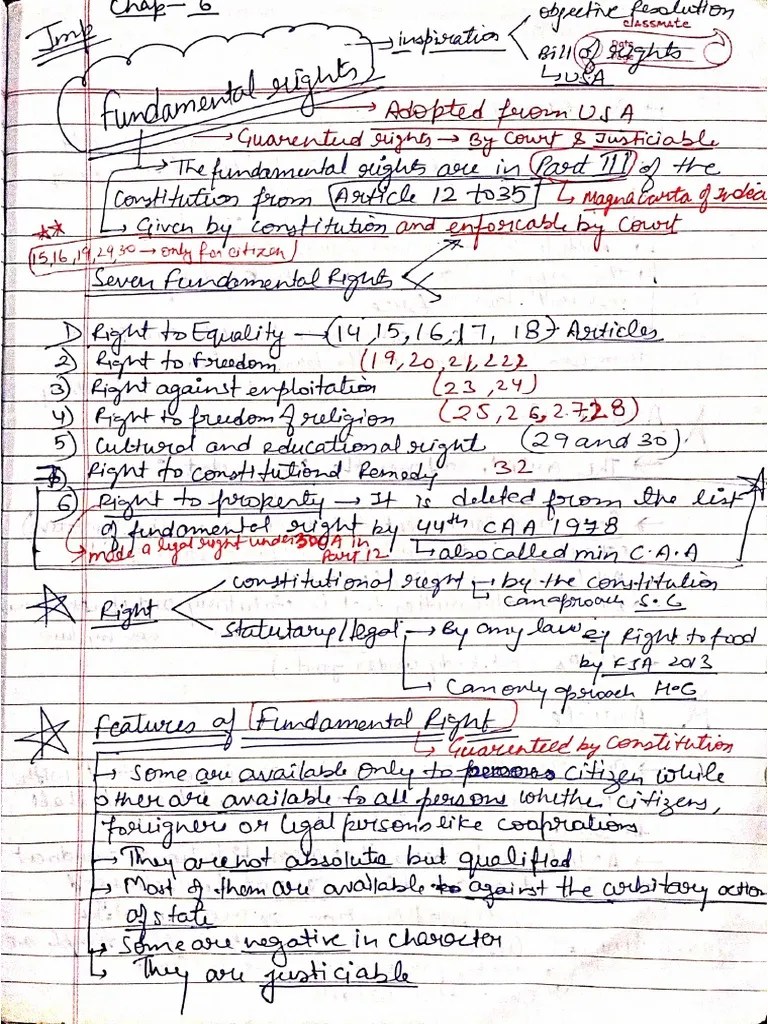 Chap- 6
Imp
objective Resolution
classmate
→ inspiration
Bill of Rights
↳ USA
Fundamental rights
→ Adopted from USA
→ Guarented rights → By Court & Justiciable
→ The fundamental rights are in Part III of the
Constitution from Article 12 to 35 ↳ Magna Carta of India
→ Given by constitution and enforcable by Court
15,16,19,29,30 → only for citizen
Seven Fundamental Rights
1) Right to Equality — (14,15,16,17, 18) - Articles
2) Right to freedom (19,20,21,22)
3) Right against exploitation (23,24)
4) Right to freedom of religion (25,26,27,28)
5) Cultural and educational right (29 and 30)
Right to constitutional Remedy 32
6) Right to property → It is deleted from the list
of fundamental right by 44th CAA 1978
made a legal right under 300A in Part 12
↳ also called mini C.A.A
Right
constitutional right → by the constitution
↳ can aproach S.C
statutary/legal → By any law eg Right to food
by FSA-2013
↳ Can only aproach H.C
Features of Fundamental Right
↳ Guarenteed by Constitution
→ Some are available only to citizen while
other are available to all persons whether citizens,
foreigners or legal persons like cooprations
→ They are not absolute but qualified
→ Most of them are available against the arbitary action
of state
→ Some are negative in character
↳ They are justiciable